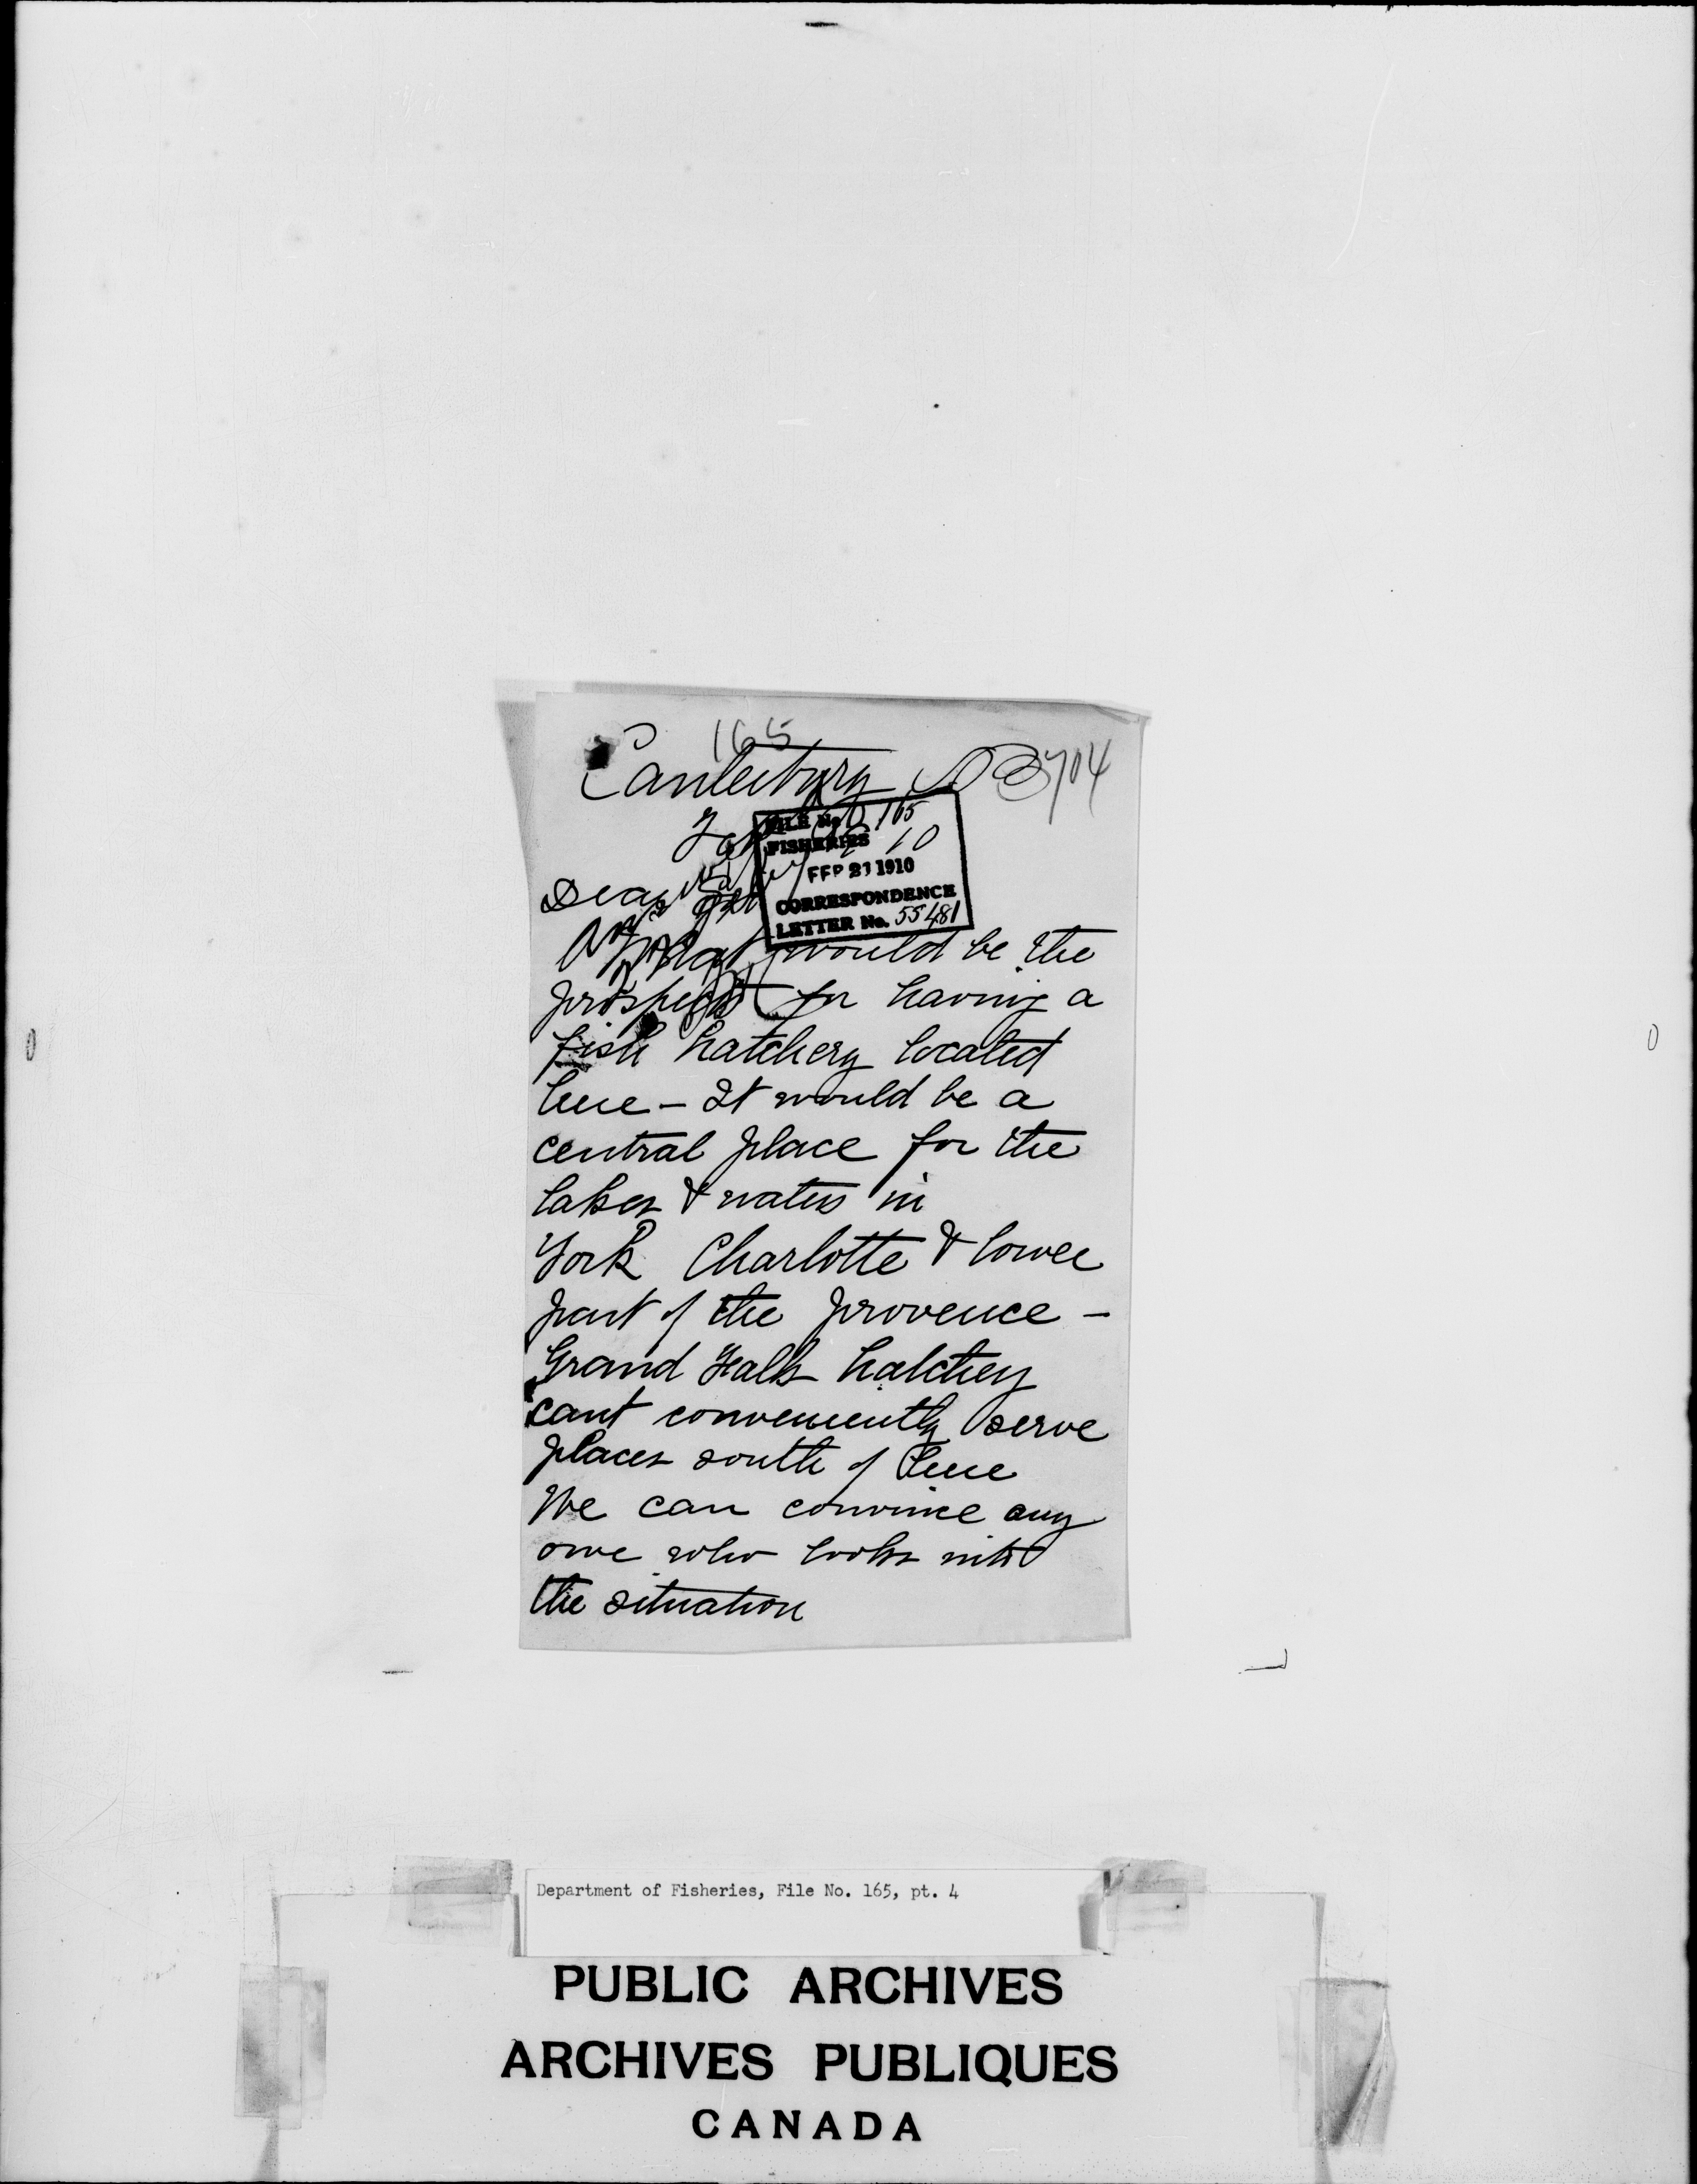 165
Canterbury NB 704
Feb 10
FILE No. 165
FISHERIES
FEB 21 1910
CORRESPONDENCE
LETTER No. 55481
Dear
What would be the
prospects for having a
fish hatchery located
here - It would be a
central place for the
lakes & waters in
York Charlotte & lower
part of the provence -
Grand Falls hatchey
cant conveniently serve
places south of here
We can convince any
one who looks into
the situation
Department of Fisheries, File No. 165, pt. 4
PUBLIC ARCHIVES
ARCHIVES PUBLIQUES
CANADA